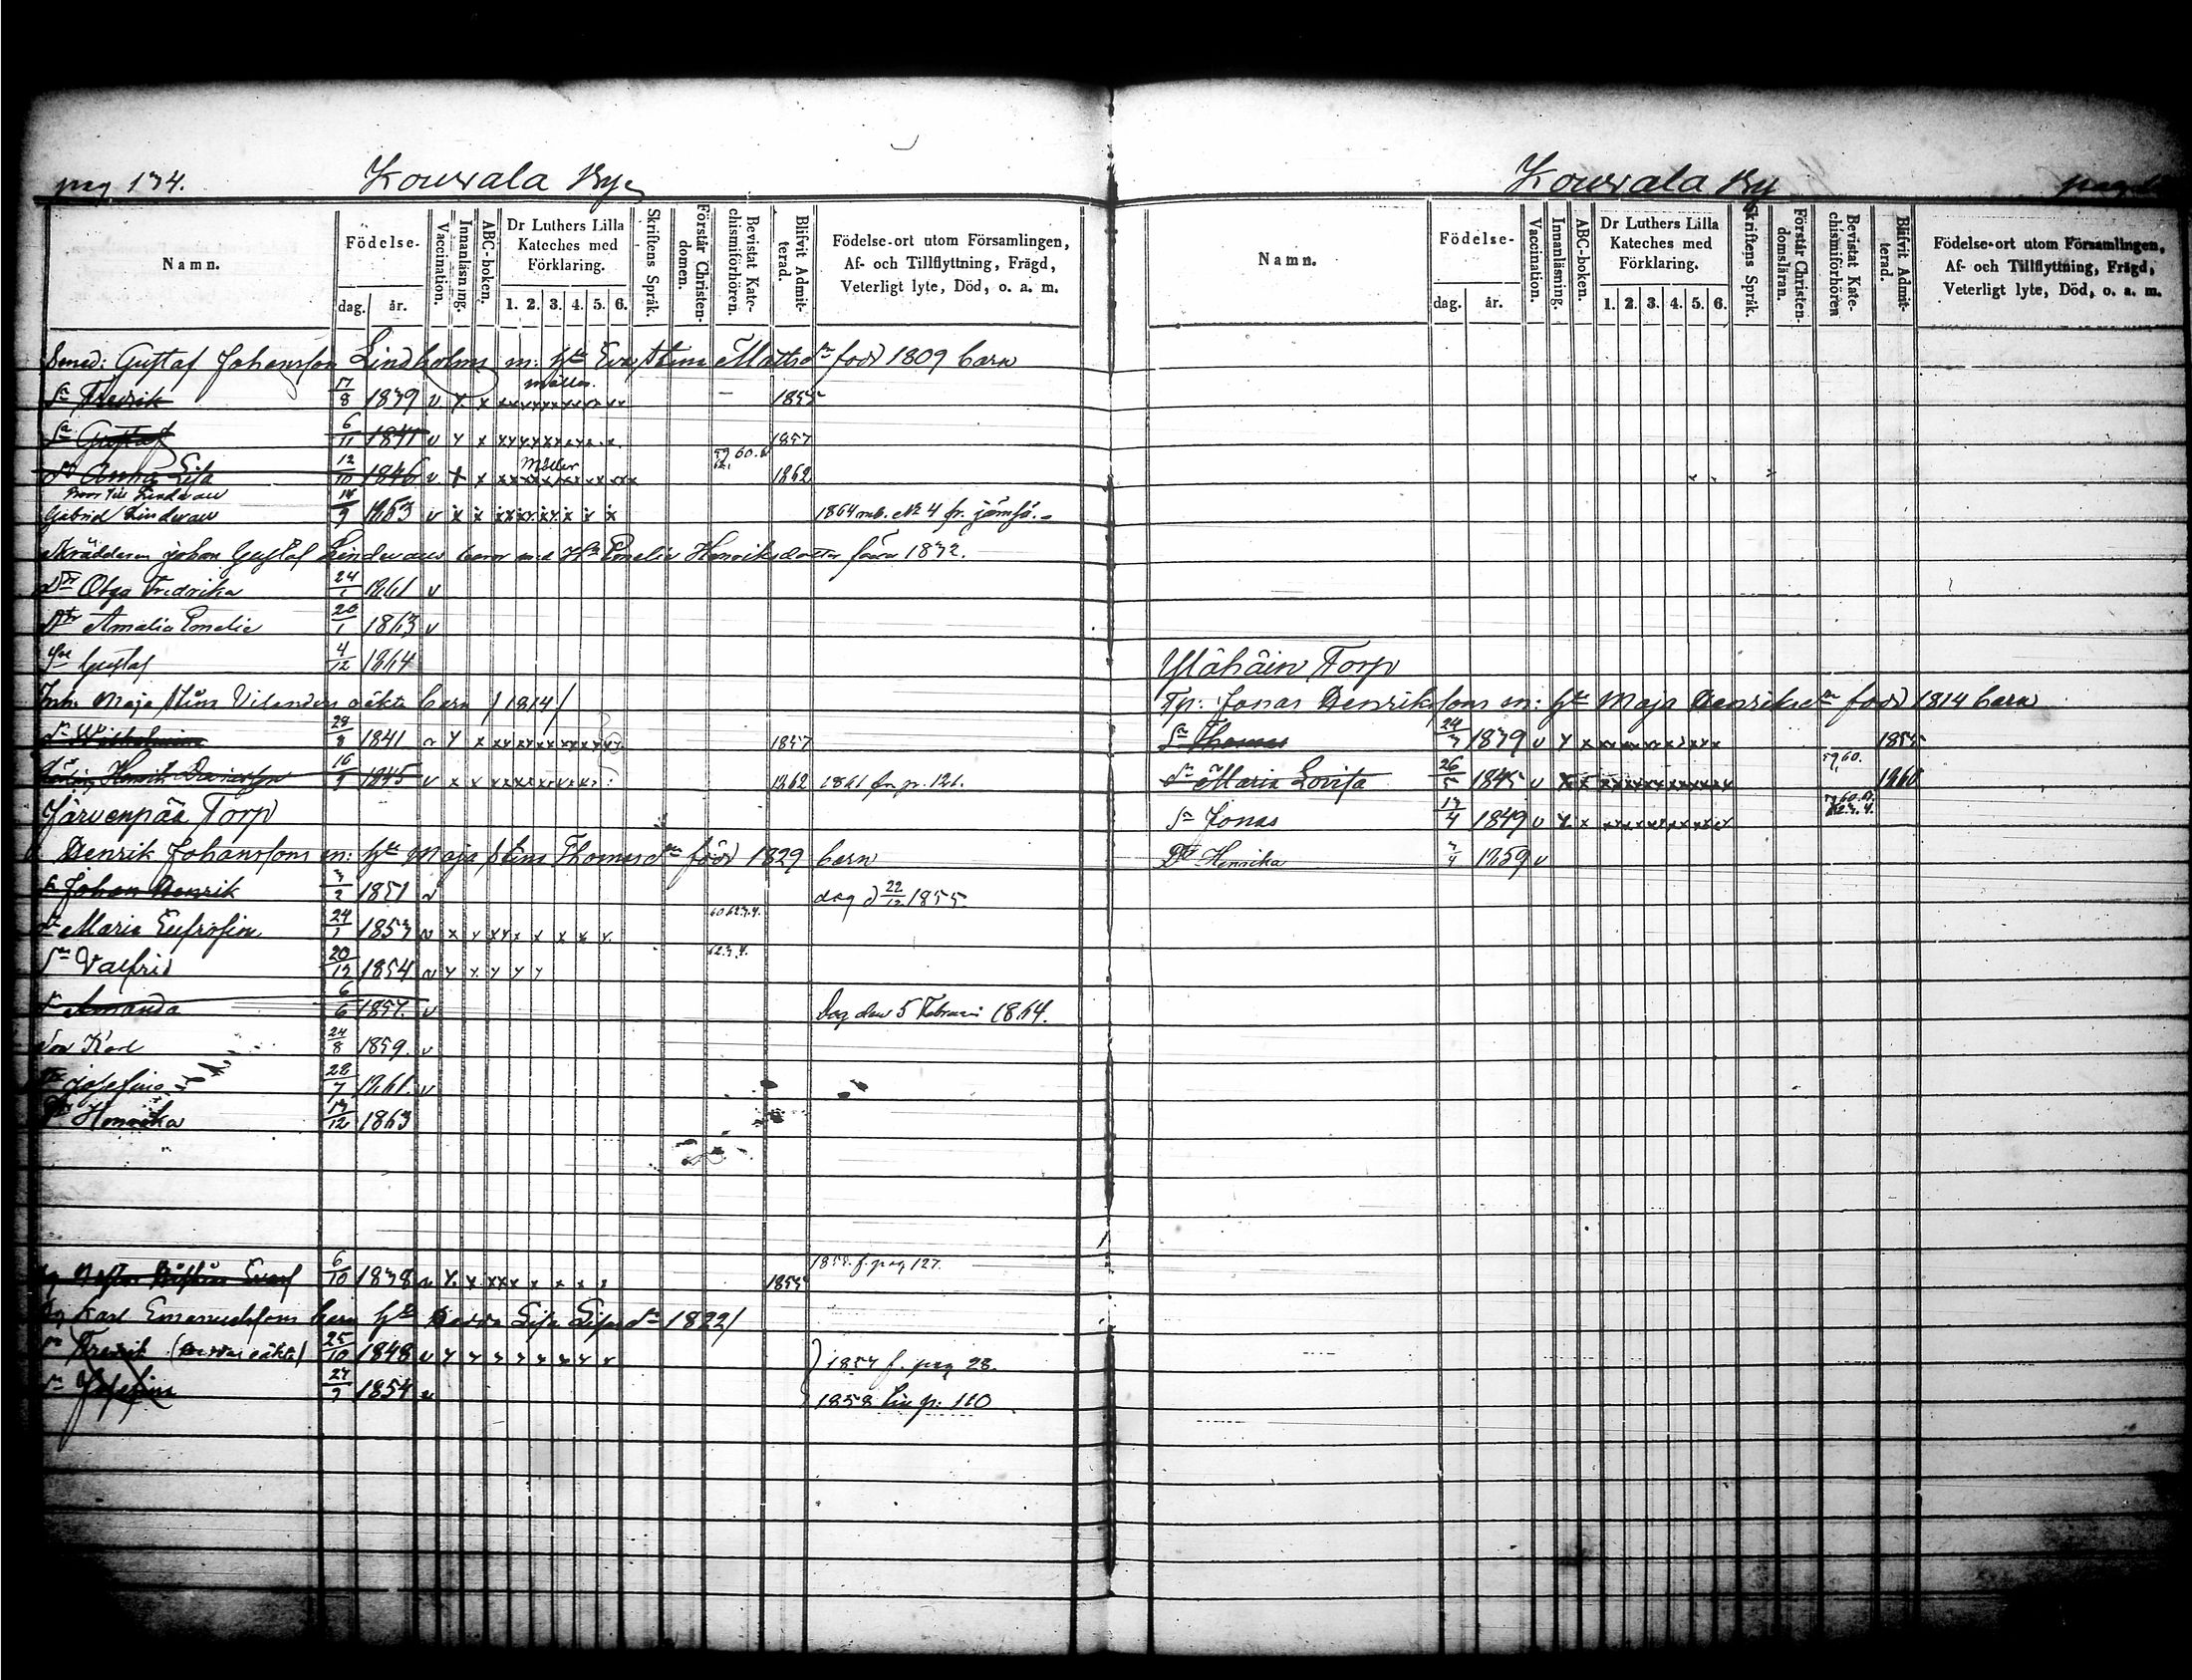 pag 134. Kouvala By
Namn. Födelse- dag. år. Vaccination. Innanläsning. ABC-boken. Dr Luthers Lilla Kateches med Förklaring. 1. 2. 3. 4. 5. 6. Skriftens Språk. Förstår Christendomen. Bevistat Katechismiförhören. Blifvit Admitterad. Födelse-ort utom Församlingen, Af- och Tillflyttning, Frägd, Veterligt lyte, Död, o. a. m.
Smed: Gustaf Johansson Lindholms m: hu Eva Stina Mattsdr född 1809 barn
Sn Fredrik 17/8 1839 v x x 1855
Sn Gustaf 6/11 1841 v x x 1857
Dr Anna Lisa 12/10 1846 v x x 1862
Gabriel Lindwall 1853 v x x 1864 mb. No 4 fr. jämsä.
Skräddaren Johan Gustaf Lindwalls barn med Hu Emelie Henriksdotter född 1832.
Dr Olga Fredrika 24/1 1861 v
Dr Amalia Emelie 20/1 1863 v
Son Gustaf 4/12 1864
Inh. Maja Stina Vilanders oäkta barn /1814/
Dr Wilhelmina 28/8 1841 v x x 1857
Henrik Davidsson 16/9 1845 v x x 1862 1861 fr. p. 121.
Järvenpää Torp
Henrik Johanssons m: hu Maja Stina Thomasdr född 1829 barn
Sn Johan Henrik 3/2 1851 v dog d 22/12 1855
Dr Maria Eufrosina 24/1 1853 v x x
Sn Valfrid 20/12 1854 v x x
Dr Amanda 6/6 1857. v Dog den 5 Februari 1864.
Son Karl 24/8 1859. v
Dr Josefina 22/7 1861. v
Dr Henrika 13/12 1863
6/10 1838 v x x 1855 1855. f. pag 127.
Karl Emanuelssons barn hu Hedda Lisa Lisasdr 1822/
Sn Fredrik 25/10 1848 v 1857 f. pag 28.
Dr Josefina 27/9 1854 v 1858 till p. 110
Kouvala By
Namn. Födelse- dag. år. Vaccination. Innanläsning. ABC-boken. Dr Luthers Lilla Kateches med Förklaring. 1. 2. 3. 4. 5. 6. Skriftens Språk. Förstår Christendomsläran. Bevistat Katechismiförhören Blifvit Admitterad. Födelse-ort utom Församlingen, Af- och Tillflyttning, Frägd, Veterligt lyte, Död, o. a. m.
Ylähäin Torp
Tp: Jonas Henrikssons m: hu Maja Henriksdr född 1814 barn
Sn Thomas 24/3 1839 v x x 1855
Dr Maria Lovisa 26/5 1845 v x x 59 60. 1860
Sn Jonas 13/4 1849 v x x
Dr Henrika 3/4 1859 v